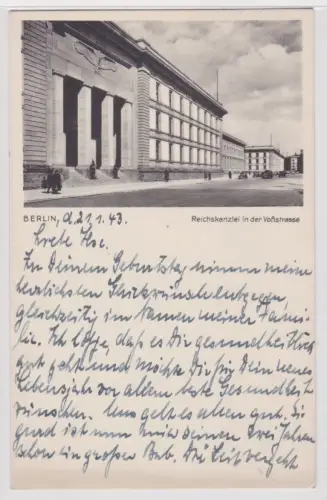 BERLIN, d. 21.1.43. Reichskanzlei in der Voßstrasse
Liebe Ilse.
Zu Deinem Geburtstag nimm meine
herzlichsten Glückwünsche entgegen,
gleichzeitig im Namen meiner Fami-
lie. Ich hoffe, daß es Dir gesundheitlich
gut geht und möchte Dir für Dein neues
Lebensjahr vor allem beste Gesundheit
wünschen. Uns geht es allen gut.
ist nun mit seinen drei Jahren
schon ein großer Bub. Die Zeit vergeht